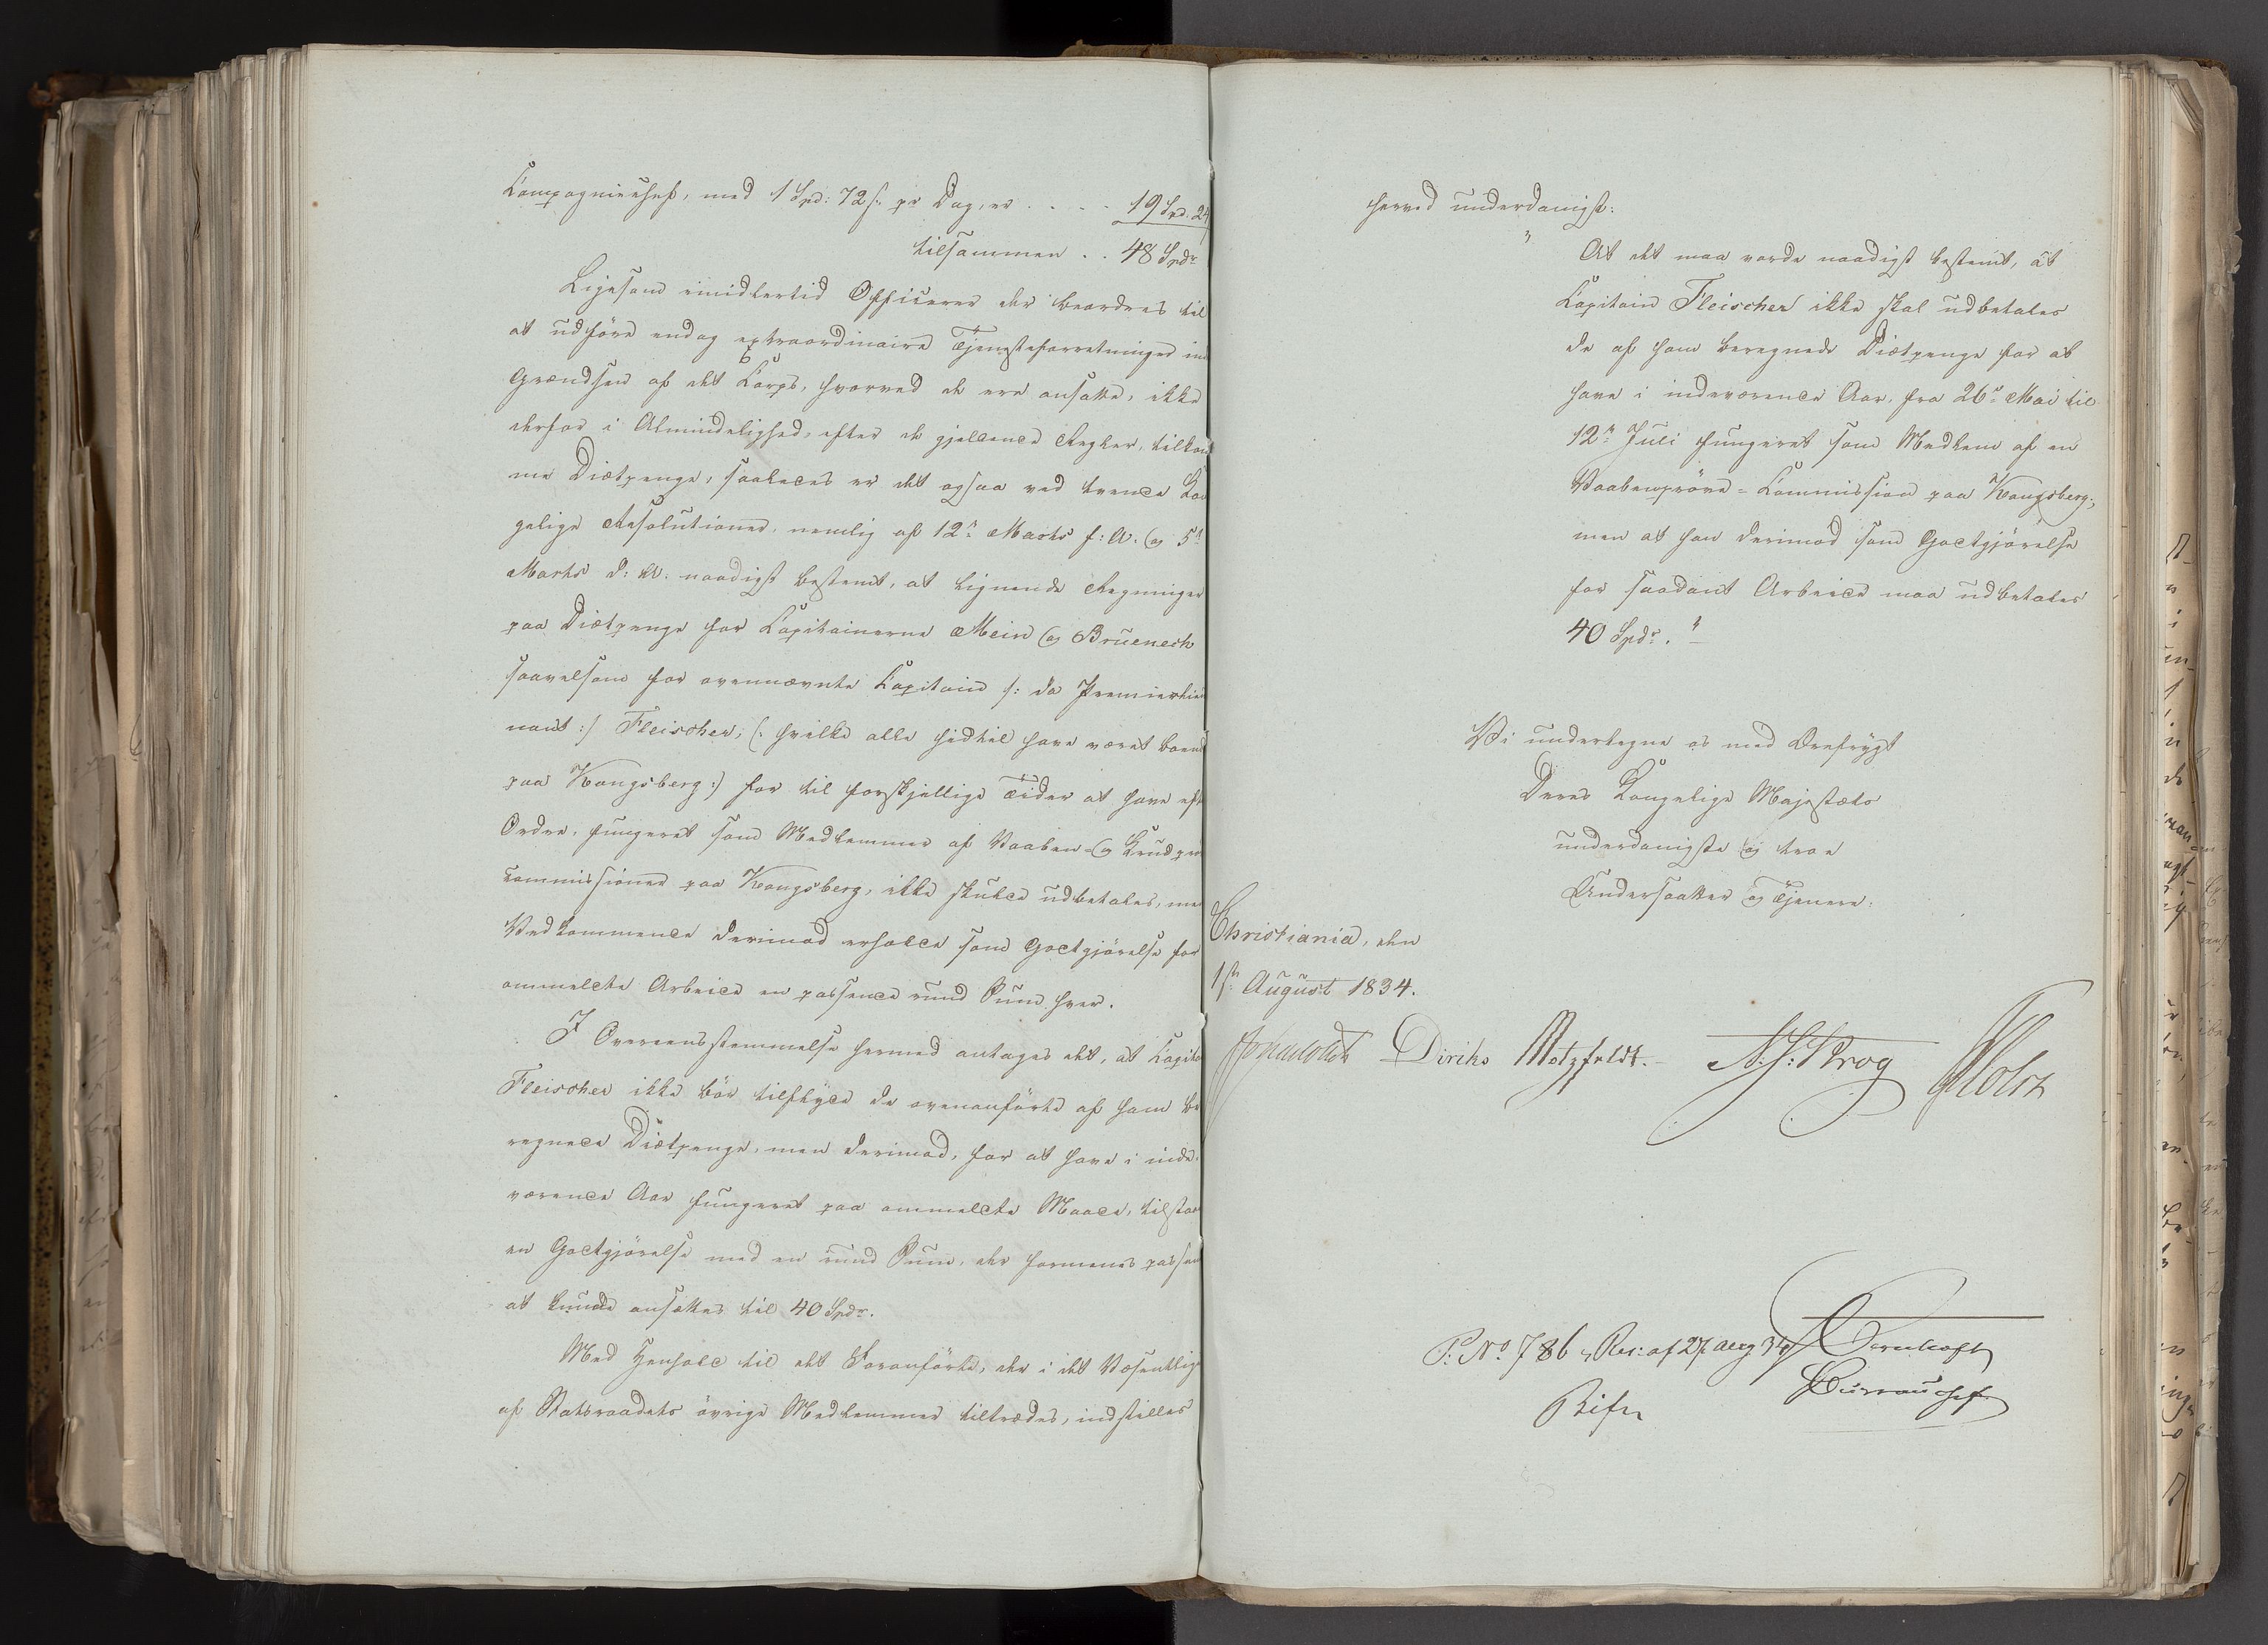 Compagniechef, med 1 Spd: 72 s. pr Dag, er . . . . 19 Spd. 24
tilsammen . . 48 Spdr
Ligesom imidlertid Officerer der beordres til
at udföre endog extraordinaire Tjenesteforretninger in
Grændsen af det Corps, hvorved de ere ansatte, ikke
derfor i Almindelighed, efter de gjeldende Regler, tilkom
me Diætpenge, saaledes er det ogsaa ved tvende Kon
gelige Resolutioner, nemlig af 12te Marts f: A. og 5te
Marts d: A. naadigst bestemt, at lignende Regninger
paa Diætpenge for Capitainerne Mein og Bruenech
saavelsom for ovennævnte Capitain /: da Premierlieu
nant :/ Fleischer, (: hvilke alle hidtil have været boend
paa Kongsberg :) for til forskjellige Tider at have eft
Ordre, fungeret som Medlemmer af Vaaben- og Krudprø
commissioner paa Kongsberg, ikke skulde udbetales, me
Vedkommende derimod erholde som Godtgjörelse for
ommeldte Arbeide en passende rund Sum hver.
I Overeensstemmelse hermed antages det, at Capita
Fleischer ikke bör tilflyde de ovenanförte af ham be
regnede Diætpenge, men derimod, for at have i inde-
værende Aar fungeret paa ommeldte Maade, tilstaae
en Godtgjörelse med en rund Sum, der formenes passen
at kunde ansættes til 40 Spdr.
Med Henhold til det Foranförte, der i det Væsentlige
af Statsraadets övrige Medlemmer tiltrædes, indstilles
herved underdanigst:
" At det maa vorde naadigst bestemt, at
Capitain Fleischer ikke skal udbetales
de af ham beregnede Diætpenge for at
have i indeværende Aar, fra 26de Mai til
12te Juli fungeret som Medlem af en
Vaabenpröve-Commission paa Kongsberg;
men at han derimod som Godtgjörelse
for saadant Arbeide maa udbetales
40 Spdr. "
Vi undertegne os med Ærefrygt
Deres Kongelige Majestæts
underdanigste og troe
Undersaatter og Tjenere.
Christiania, den
1ste August 1834.
Diriks Motzfeldt. N. J: Krog Holst
P: No 786, Res: af 27 Aug 34